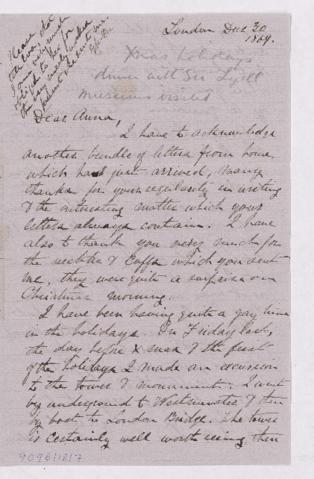 London Dec 30
1869.
Xmas holidays
dinner with Sir Lyell
museums visited
Please
Dear Anna,
I have to acknowledge
another bundle of letters from home
which had just arrived, many
thanks for your regularity in writing
& the interesting matter which your
letters always contain. I have
also to thank you very much for
the necktie & Cuffs which you sent
me, they were quite a surprise on
Christmas morning.
I have been having quite a gay time
in the holidays. On Friday last,
the day before Xmas & the first
of the holidays I made an excursion
to the tower & Monument. I went
by underground to Westminster & then
by boat to London Bridge. The tower
is certainly well worth seeing, there